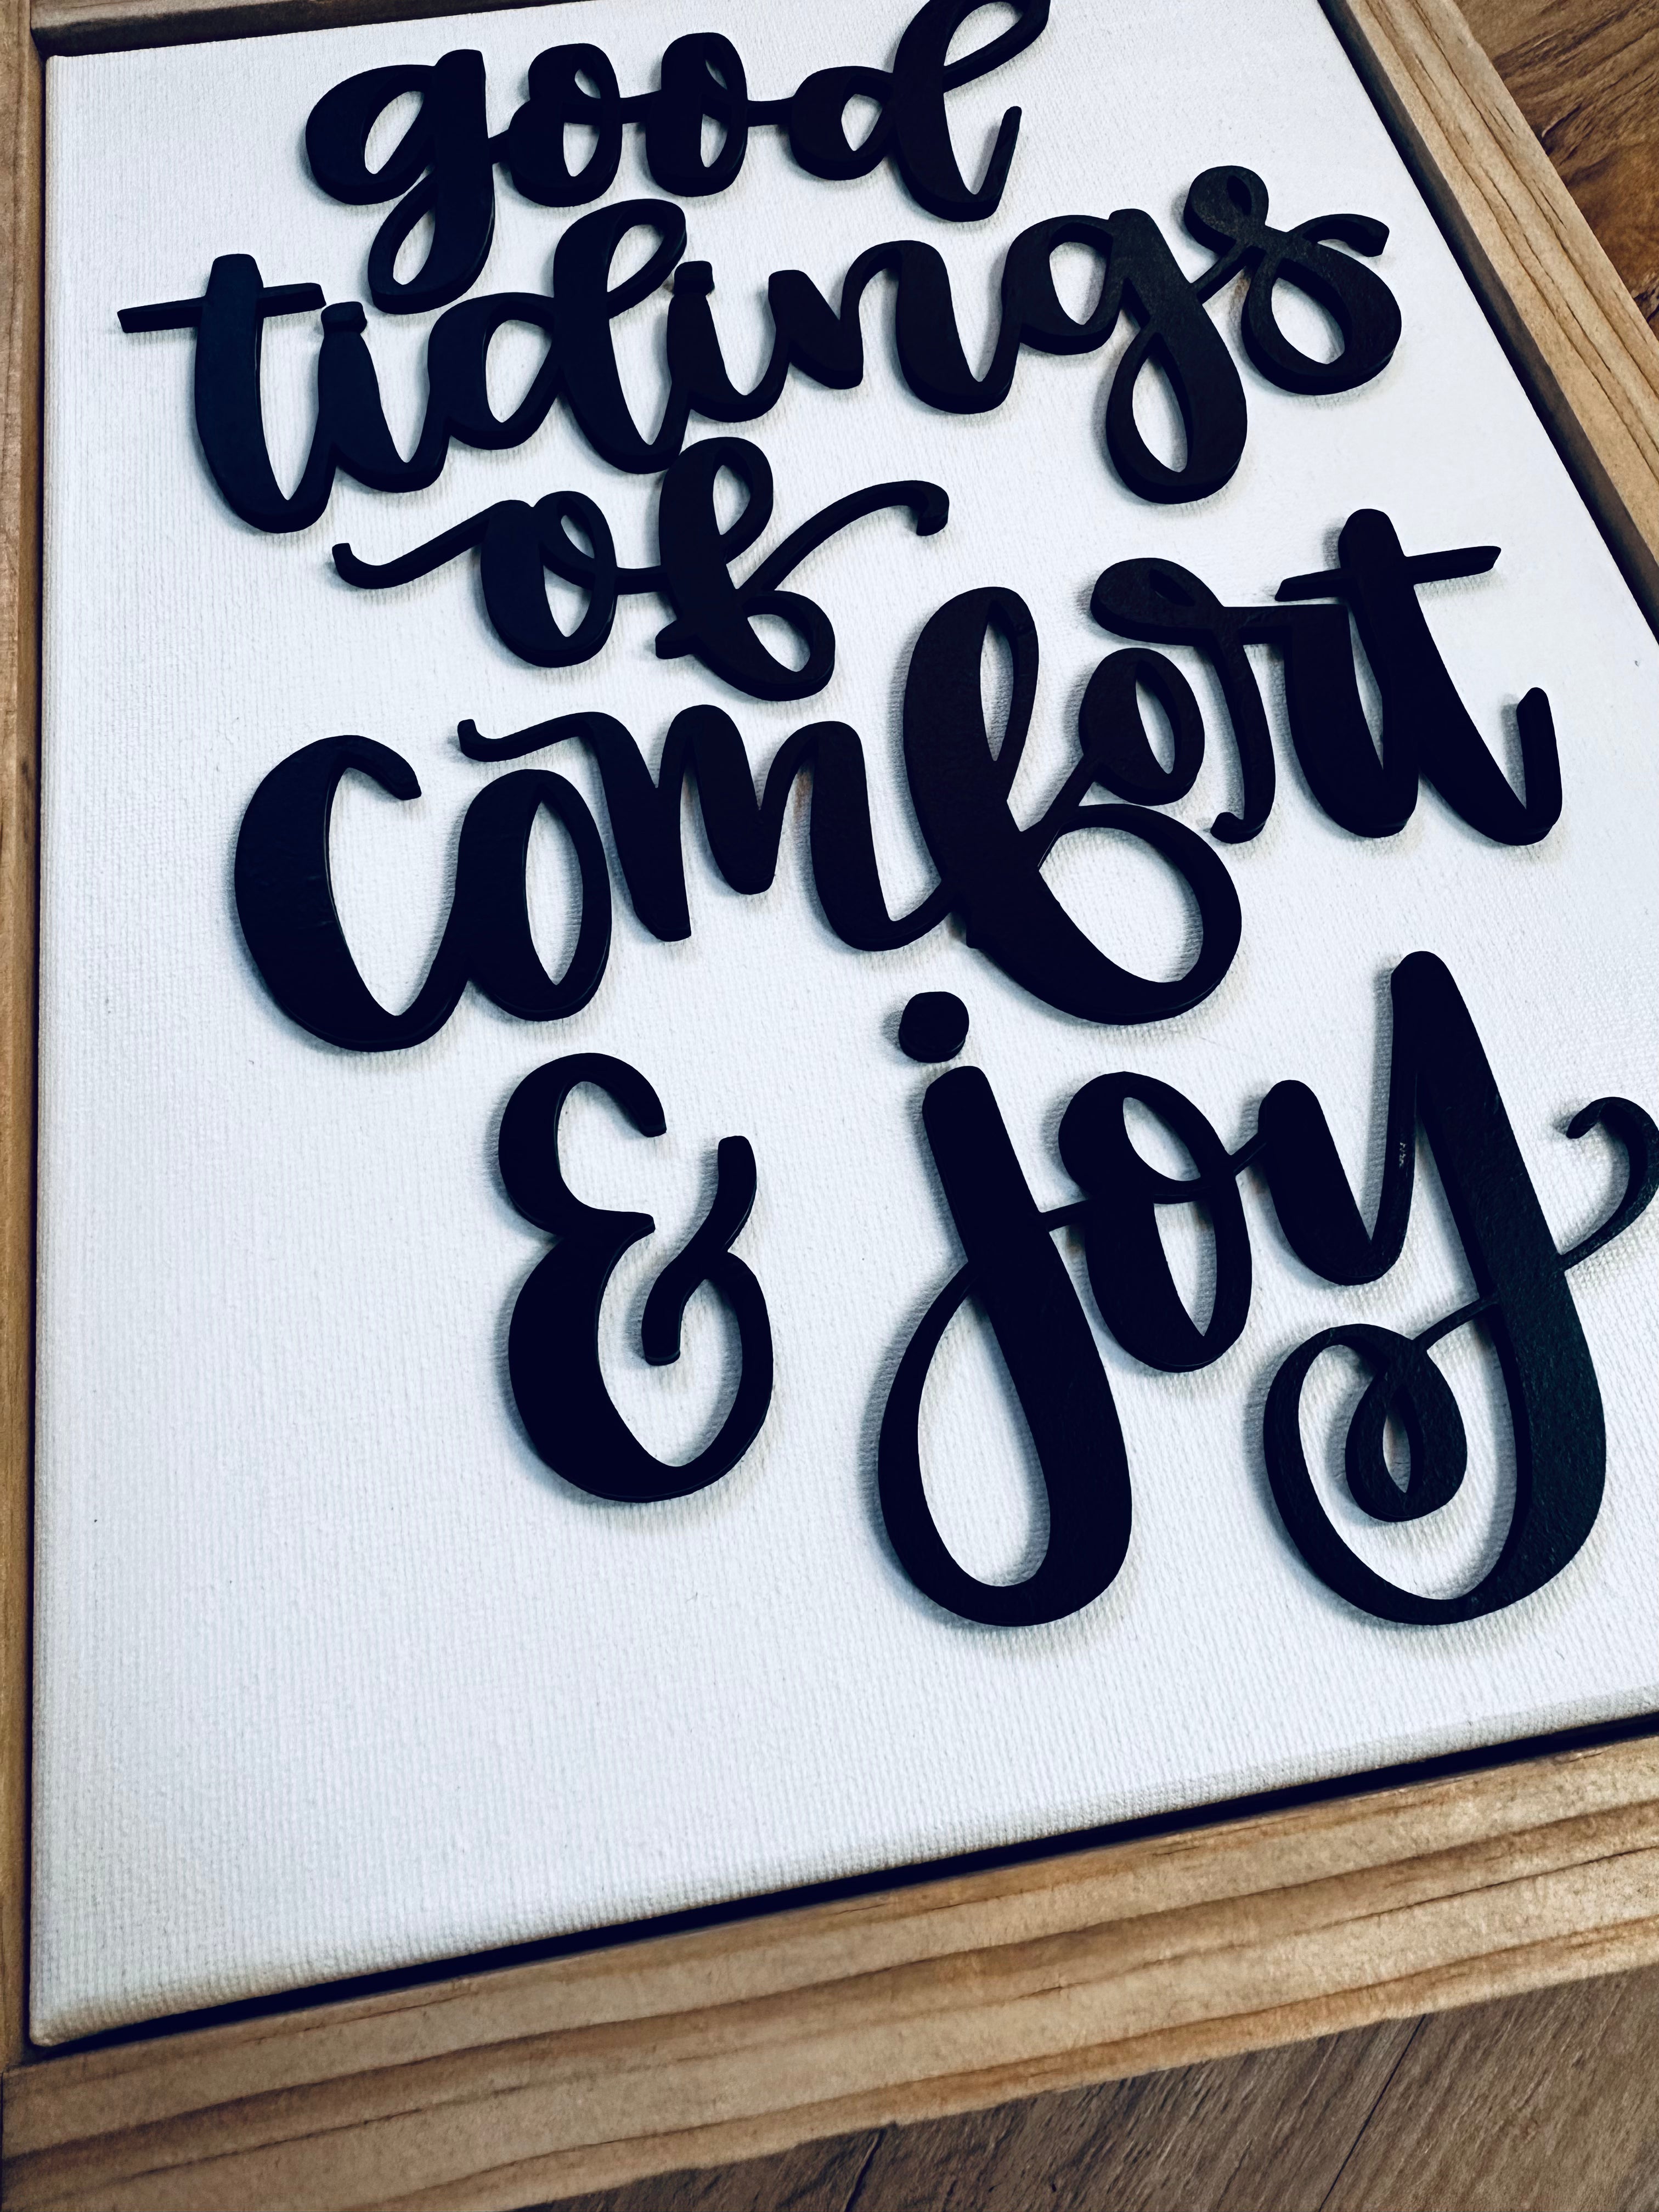 good
tidings
of
comfort
& joy